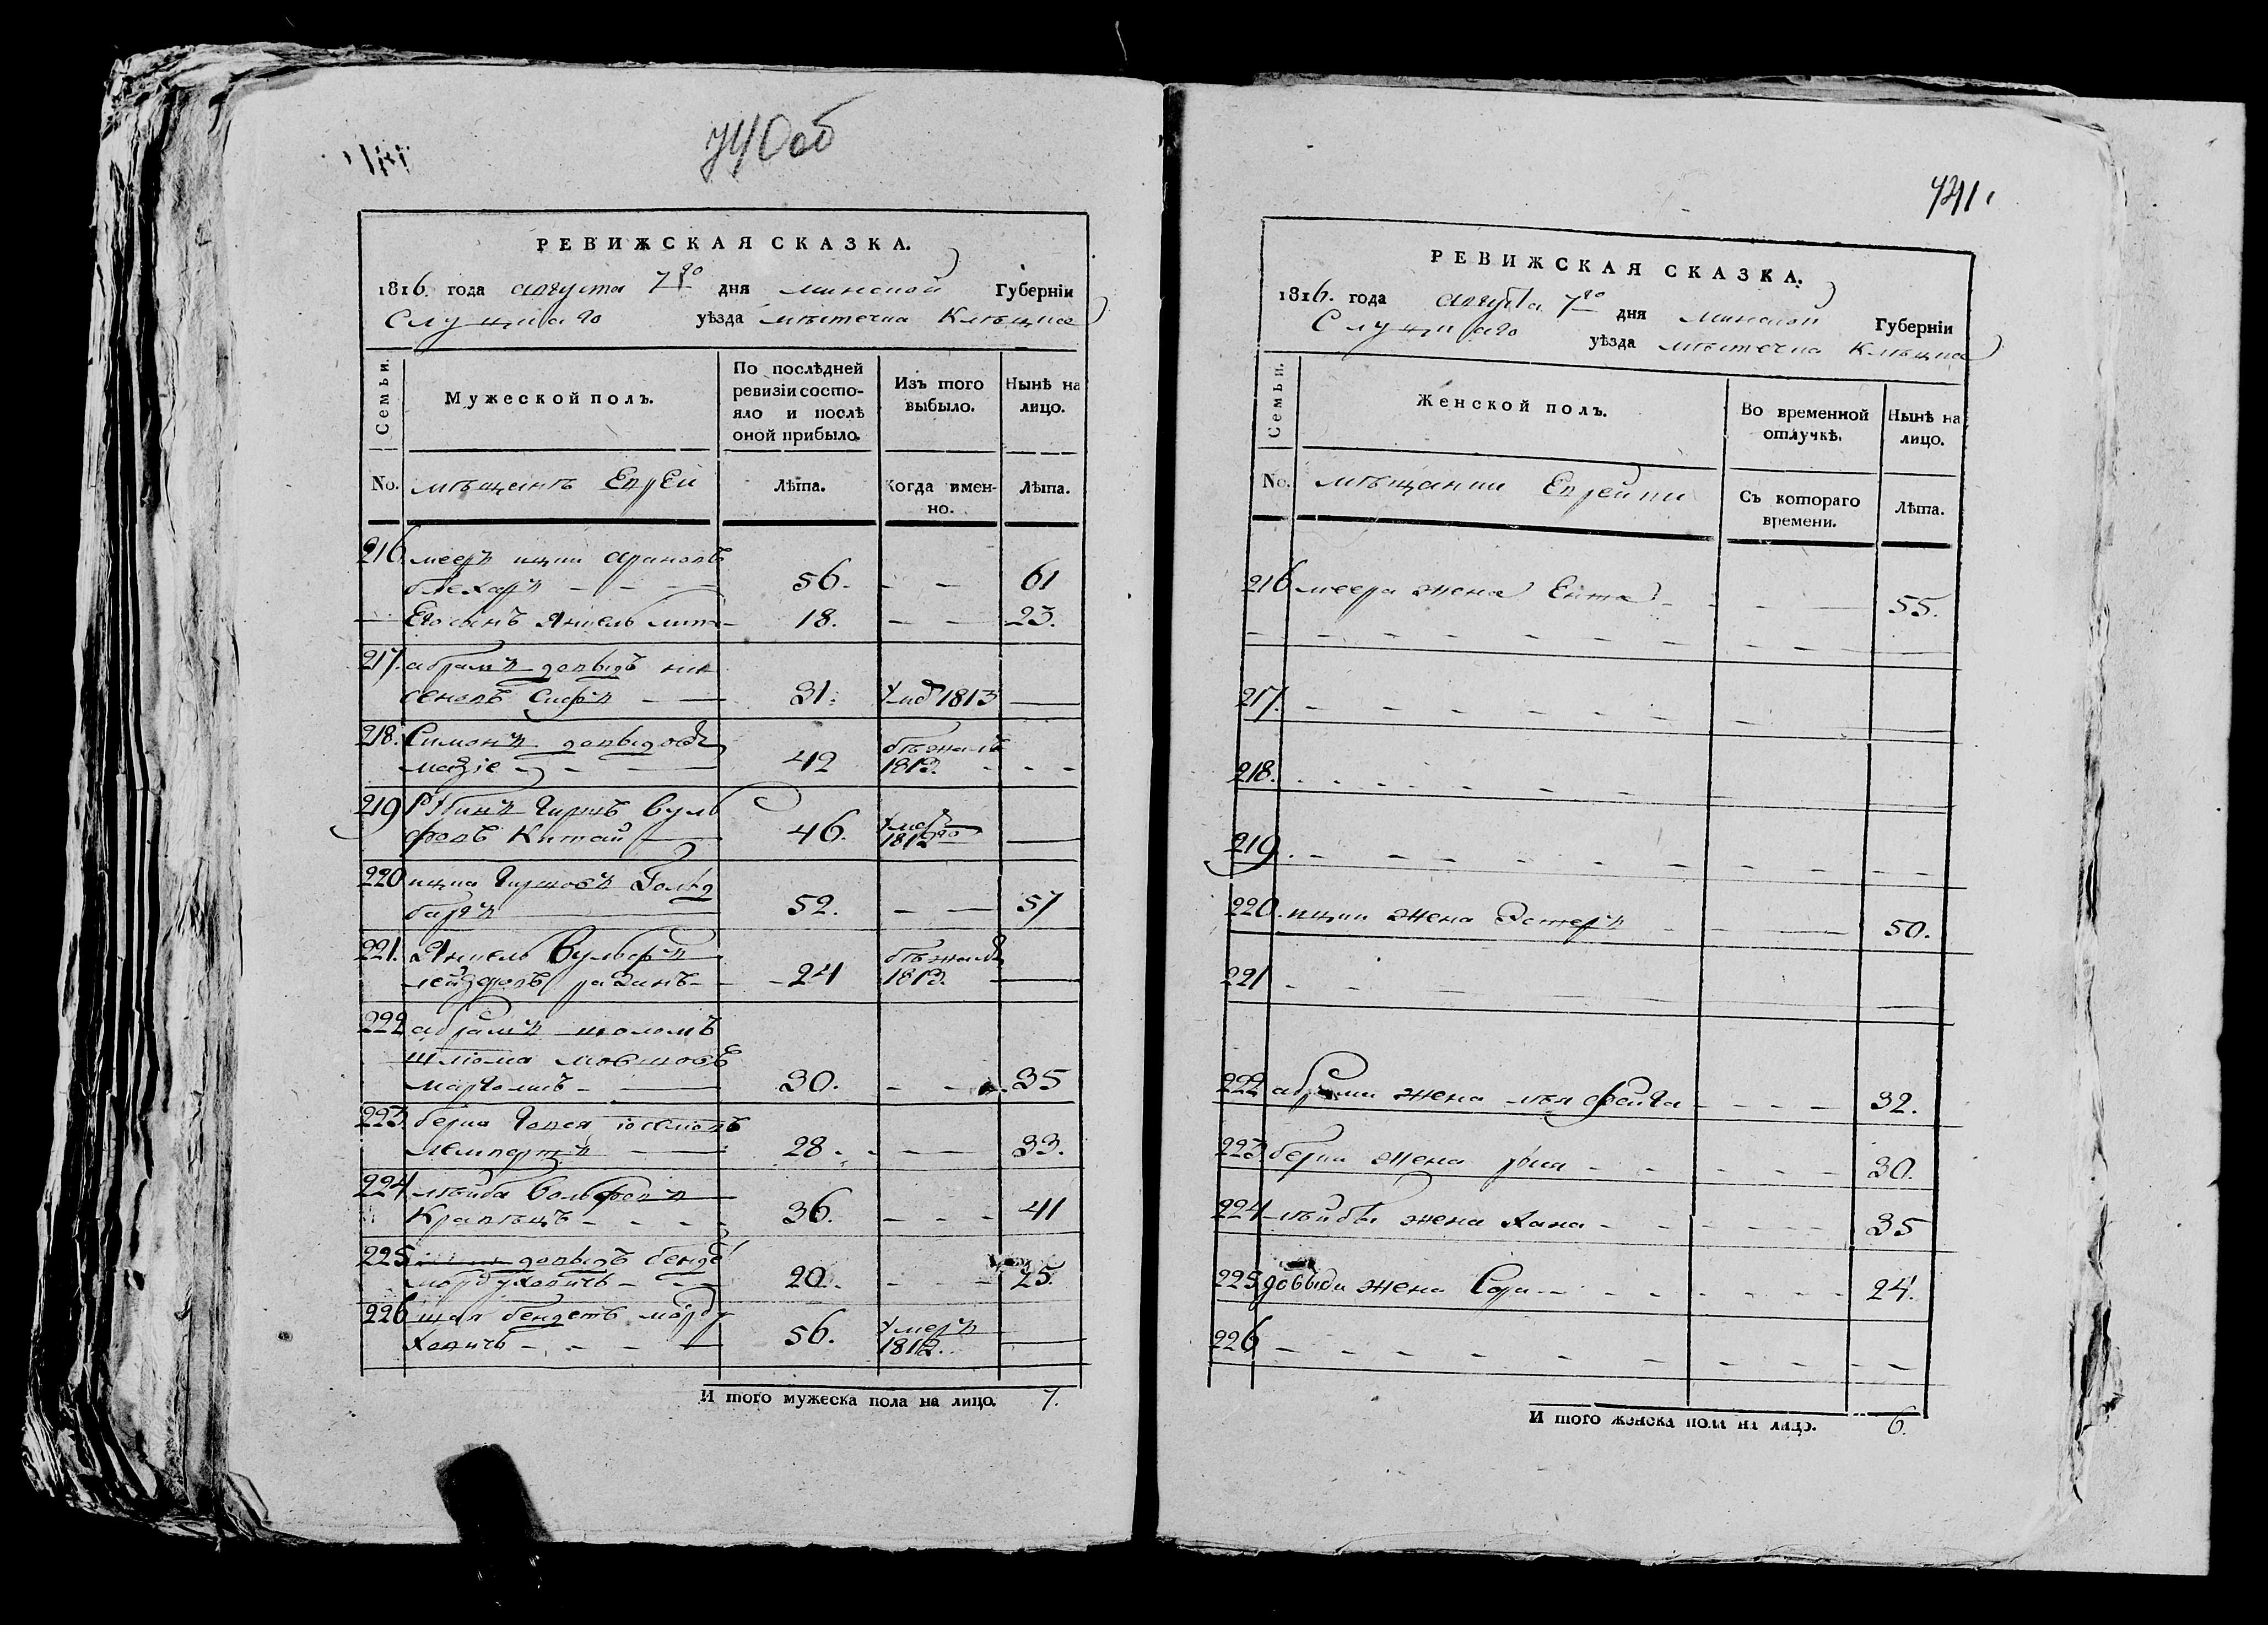 740об
РЕВИЖСКАЯ СКАЗКА.
1816. года августа 7го дня минской Губернiи
Слуцкаго уѣзда мѣстечка Клѣцка
Семьи.
Мужеской полъ.
По послѣдней ревизiи состо-
яло и послѣ
оной прибыло.
Изъ того
выбыло.
Нынѣ на
лицо.
No. мѣщанъ Еврей
Лѣта.
Когда имен-
но.
Лѣта.
216. мееръ ицки ароновъ
блехаръ 56. 61
Его сынъ Янкель 18. 23.
217. абрамъ довыдъ ни
сеновъ 31. 1813
218. Симонъ довыдовъ бѣжалъ
42 1813.
219 Рубинъ Гиршъ Вуль
фовъ Китай 46. умеръ 1812го
220 ицка Гиршовъ Гольд
баръ 52. 57
221. Янкель Вульфъ бѣжалъ
24 1813.
222 абрамъ шоломъ
шлiома мовшовъ
марголинъ 30. 35
223. берка iоселiовъ
28. 33.
224 лѣйба Вольфовъ
Кравецъ 36. 41
225 довыдъ бенде
мордуховичъ 20. 25.
226 шая бендетъморду
ховичъ 56. умеръ 1812.
И того мужеска пола на лицо. 7.
741.
РЕВИЖСКАЯ СКАЗКА.
1816. года августа 7го дня минской Губернiи
Слуцкаго уѣзда мѣстечка Клѣцка
Семьи.
Женской полъ.
Во временной
отлучкѣ.
Нынѣ на
лицо.
No. мѣщанки Еврейки
Съ котораго
времени.
Лѣта.
216 меера жена Ента 55.
217.
218.
219.
220. ицки жена Эстеръ 50.
221
222 абрама жена фейга 32.
223 берки жена 30.
224 лѣйбы жена хана 35
225 довыда жена Сора 24.
226
И того женска пола на лицо. 6.